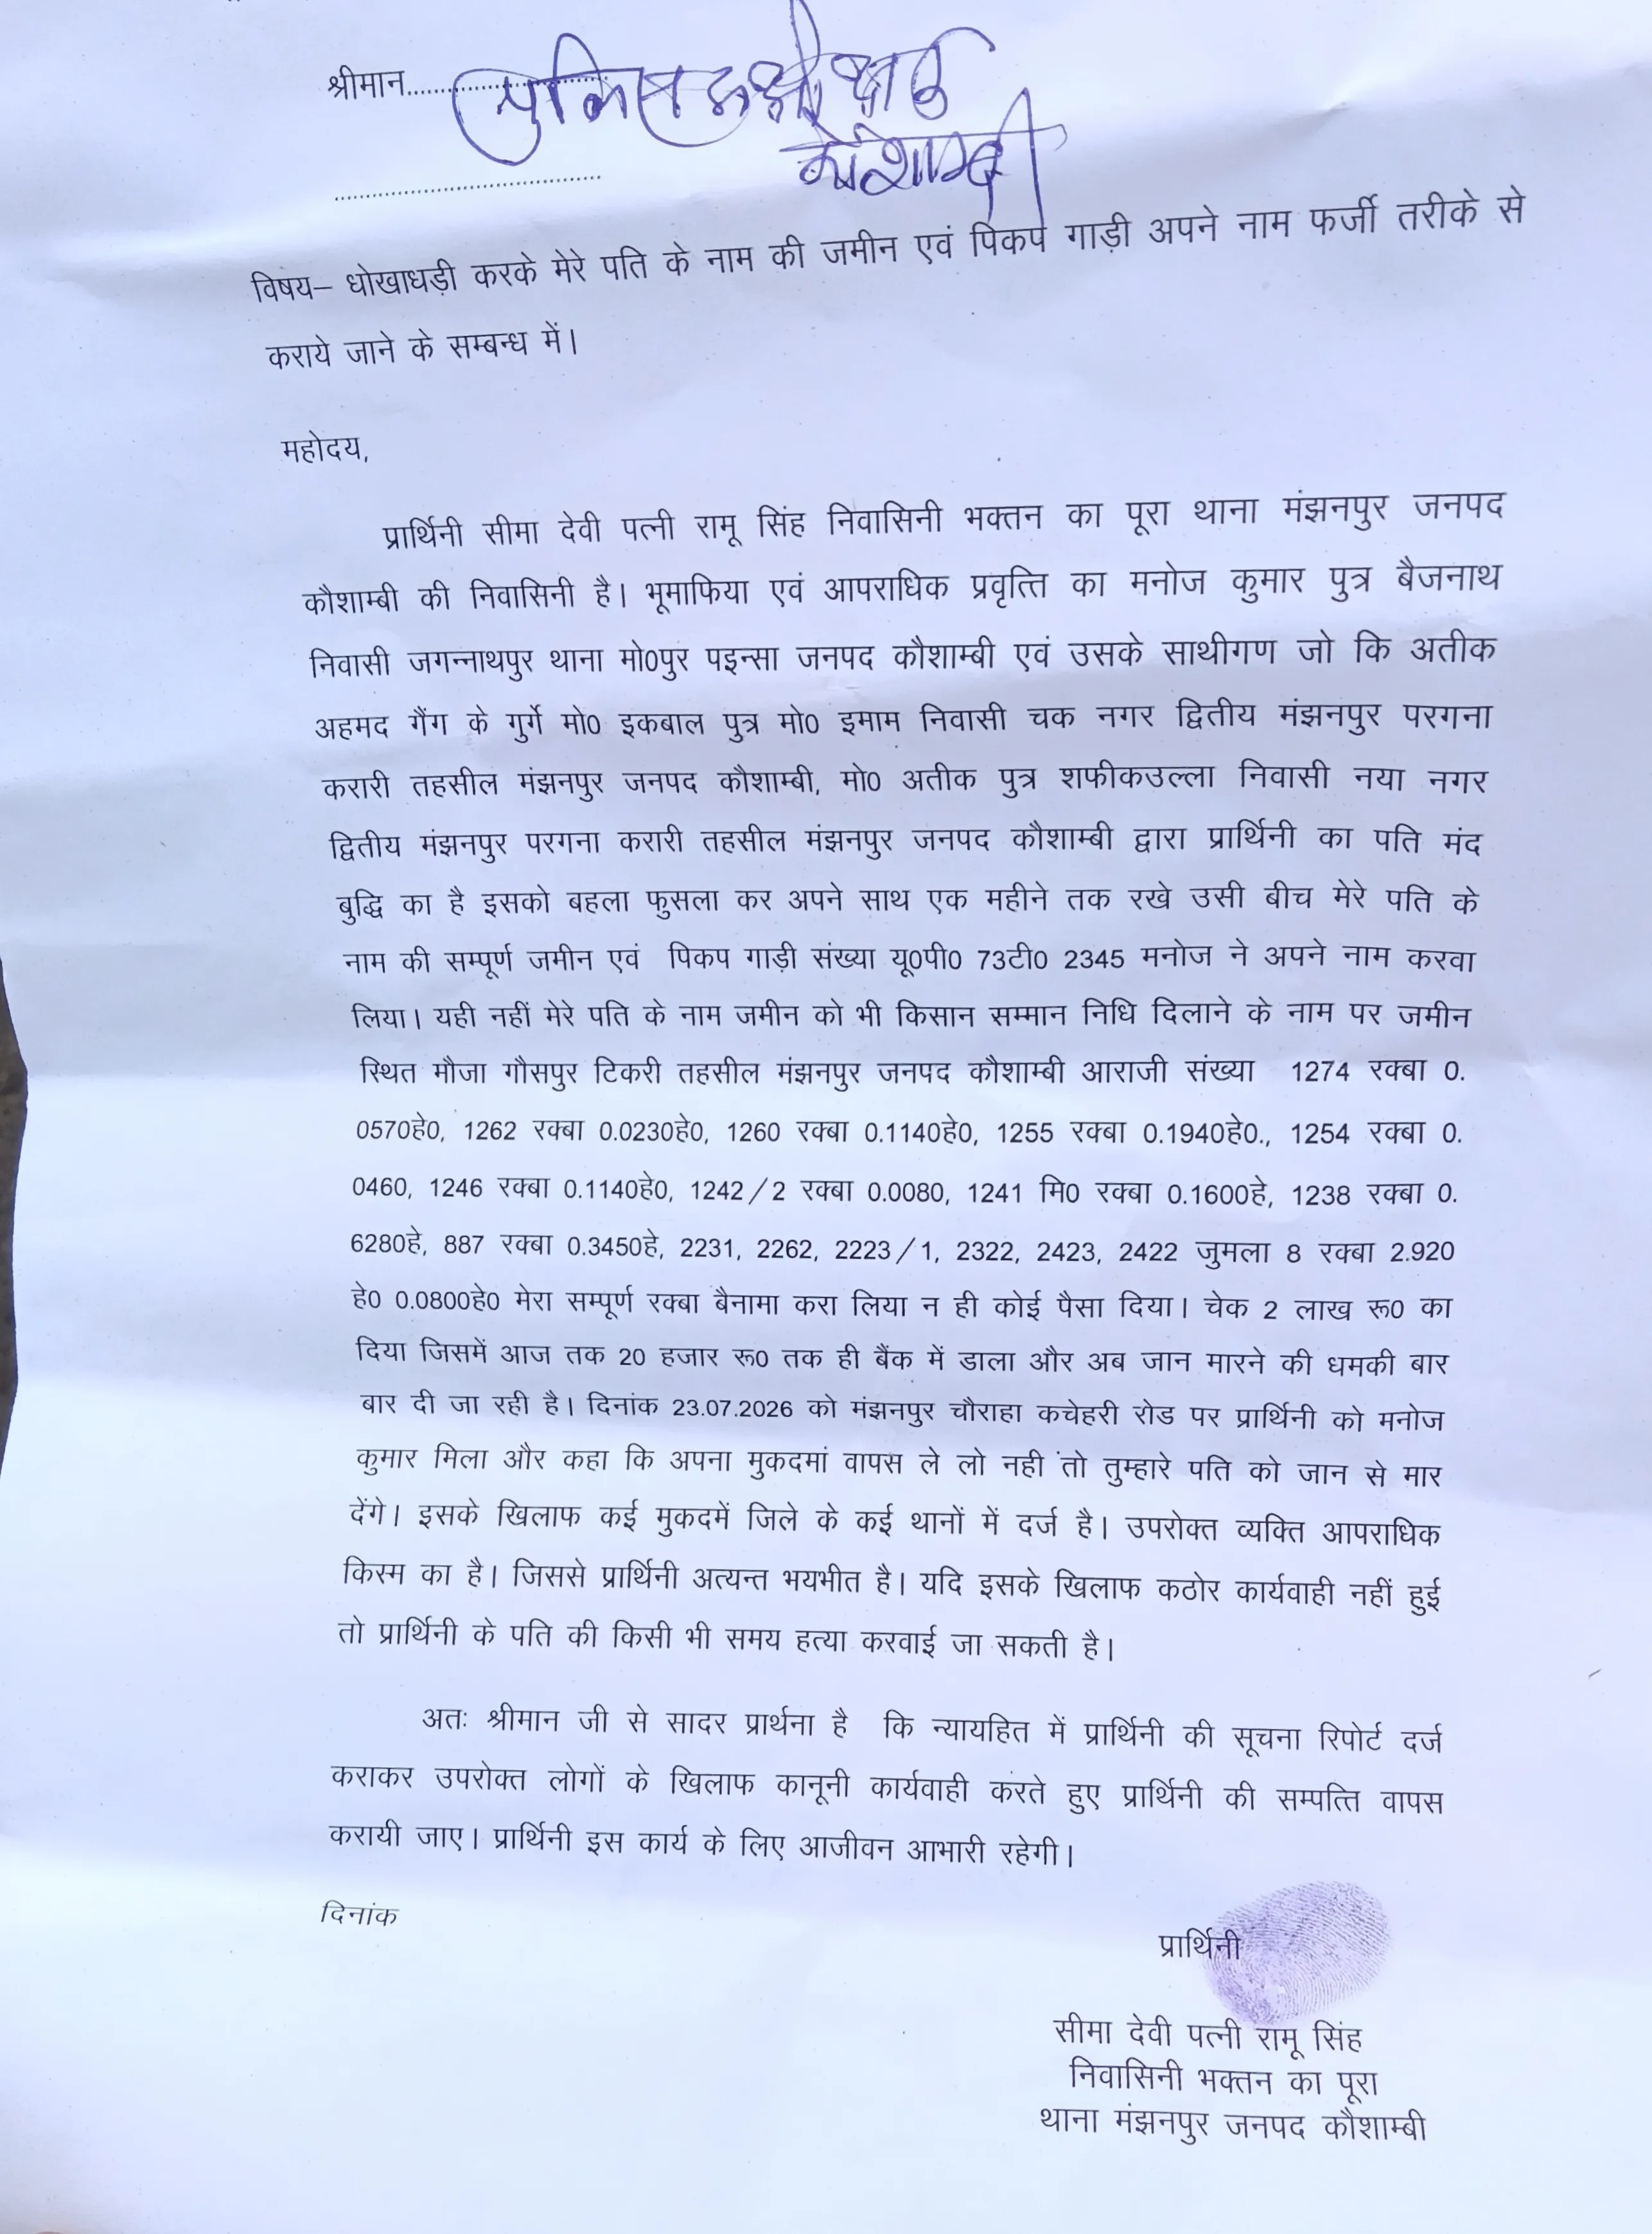 श्रीमान..............................
पुलिस अधीक्षक
कौशाम्बी
........................................
विषय– धोखाधड़ी करके मेरे पति के नाम की जमीन एवं पिकप गाड़ी अपने नाम फर्जी तरीके से
कराये जाने के सम्बन्ध में।
महोदय,
प्रार्थिनी सीमा देवी पत्नी रामू सिंह निवासिनी भक्तन का पूरा थाना मंझनपुर जनपद
कौशाम्बी की निवासिनी है। भूमाफिया एवं आपराधिक प्रवृत्ति का मनोज कुमार पुत्र बैजनाथ
निवासी जगन्नाथपुर थाना मो0पुर पइन्सा जनपद कौशाम्बी एवं उसके साथीगण जो कि अतीक
अहमद गैंग के गुर्गे मो0 इकबाल पुत्र मो0 इमाम निवासी चक नगर द्वितीय मंझनपुर परगना
करारी तहसील मंझनपुर जनपद कौशाम्बी, मो0 अतीक पुत्र शफीकउल्ला निवासी नया नगर
द्वितीय मंझनपुर परगना करारी तहसील मंझनपुर जनपद कौशाम्बी द्वारा प्रार्थिनी का पति मंद
बुद्धि का है इसको बहला फुसला कर अपने साथ एक महीने तक रखे उसी बीच मेरे पति के
नाम की सम्पूर्ण जमीन एवं पिकप गाड़ी संख्या यू0पी0 73टी0 2345 मनोज ने अपने नाम करवा
लिया। यही नहीं मेरे पति के नाम जमीन को भी किसान सम्मान निधि दिलाने के नाम पर जमीन
स्थित मौजा गौसपुर टिकरी तहसील मंझनपुर जनपद कौशाम्बी आराजी संख्या 1274 रक्बा 0.
0570हे0, 1262 रक्बा 0.0230हे0, 1260 रक्बा 0.1140हे0, 1255 रक्बा 0.1940हे0., 1254 रक्बा 0.
0460, 1246 रक्बा 0.1140हे0, 1242/2 रक्बा 0.0080, 1241 मि0 रक्बा 0.1600हे, 1238 रक्बा 0.
6280हे, 887 रक्बा 0.3450हे, 2231, 2262, 2223/1, 2322, 2423, 2422 जुमला 8 रक्बा 2.920
हे0 0.0800हे0 मेरा सम्पूर्ण रक्बा बैनामा करा लिया न ही कोई पैसा दिया। चेक 2 लाख रू0 का
दिया जिसमें आज तक 20 हजार रू0 तक ही बैंक में डाला और अब जान मारने की धमकी बार
बार दी जा रही है। दिनांक 23.07.2026 को मंझनपुर चौराहा कचेहरी रोड पर प्रार्थिनी को मनोज
कुमार मिला और कहा कि अपना मुकदमां वापस ले लो नही तो तुम्हारे पति को जान से मार
देंगे। इसके खिलाफ कई मुकदमें जिले के कई थानों में दर्ज है। उपरोक्त व्यक्ति आपराधिक
किस्म का है। जिससे प्रार्थिनी अत्यन्त भयभीत है। यदि इसके खिलाफ कठोर कार्यवाही नहीं हुई
तो प्रार्थिनी के पति की किसी भी समय हत्या करवाई जा सकती है।
अतः श्रीमान जी से सादर प्रार्थना है कि न्यायहित में प्रार्थिनी की सूचना रिपोर्ट दर्ज
कराकर उपरोक्त लोगों के खिलाफ कानूनी कार्यवाही करते हुए प्रार्थिनी की सम्पत्ति वापस
करायी जाए। प्रार्थिनी इस कार्य के लिए आजीवन आभारी रहेगी।
दिनांक
प्रार्थिनी
सीमा देवी पत्नी रामू सिंह
निवासिनी भक्तन का पूरा
थाना मंझनपुर जनपद कौशाम्बी